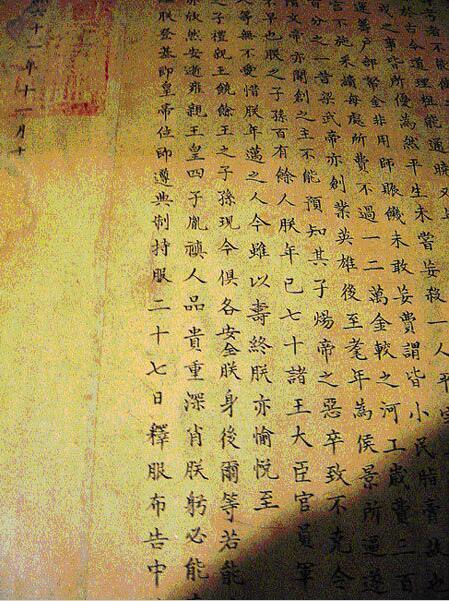 於古今道理粗能通曉又
戎之事皆所優為然平生未嘗妄殺一人平定
運籌戶部帑金非用師賑饑未敢妄費謂皆小民脂膏故也
宮不施采繢每處所費不過一二萬金較之河工歲費
百分之一昔梁武帝亦創業英雄後至耄年為侯景所逼遂
隋文帝亦開創之主不能預知其子煬帝之惡卒致不克令
不早也朕之子孫百有餘人朕年已七十諸王大臣官員軍
人等無不愛惜朕年邁之人今雖以壽終朕亦愉悅至
子禮親王饒餘王之子孫現今俱各安全朕身後爾等若能
亦欣然安逝雍親王皇四子胤禛人品貴重深肖朕躬必能
朕登基即皇帝位即遵典制持服二十七日釋服布告中
六十一年十一月十